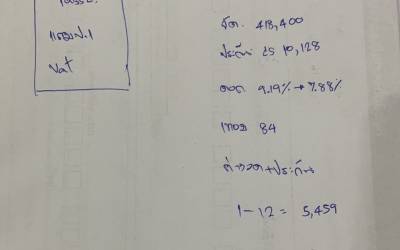 แถมป.1
Vat
จัด. 418,400
ประกัน 25 10,128
ดอก 9.19% → 7.88%
เทอม 84
ค่างวด+ประกัน
1-12 = 5,459